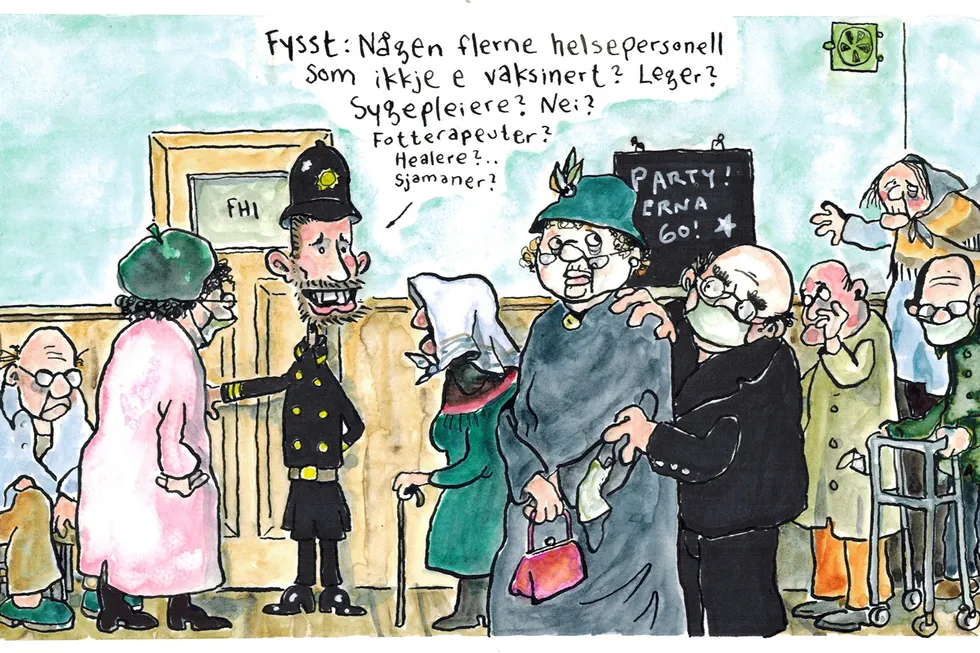 Fysst: Någen flerne helsepersonell
Som ikkje e vaksinert? Leger?
Sygepleiere? Nei?
Fotterapeuter?
Healere?..
Sjamaner?
FHI
PARTY!
ERNA
60!